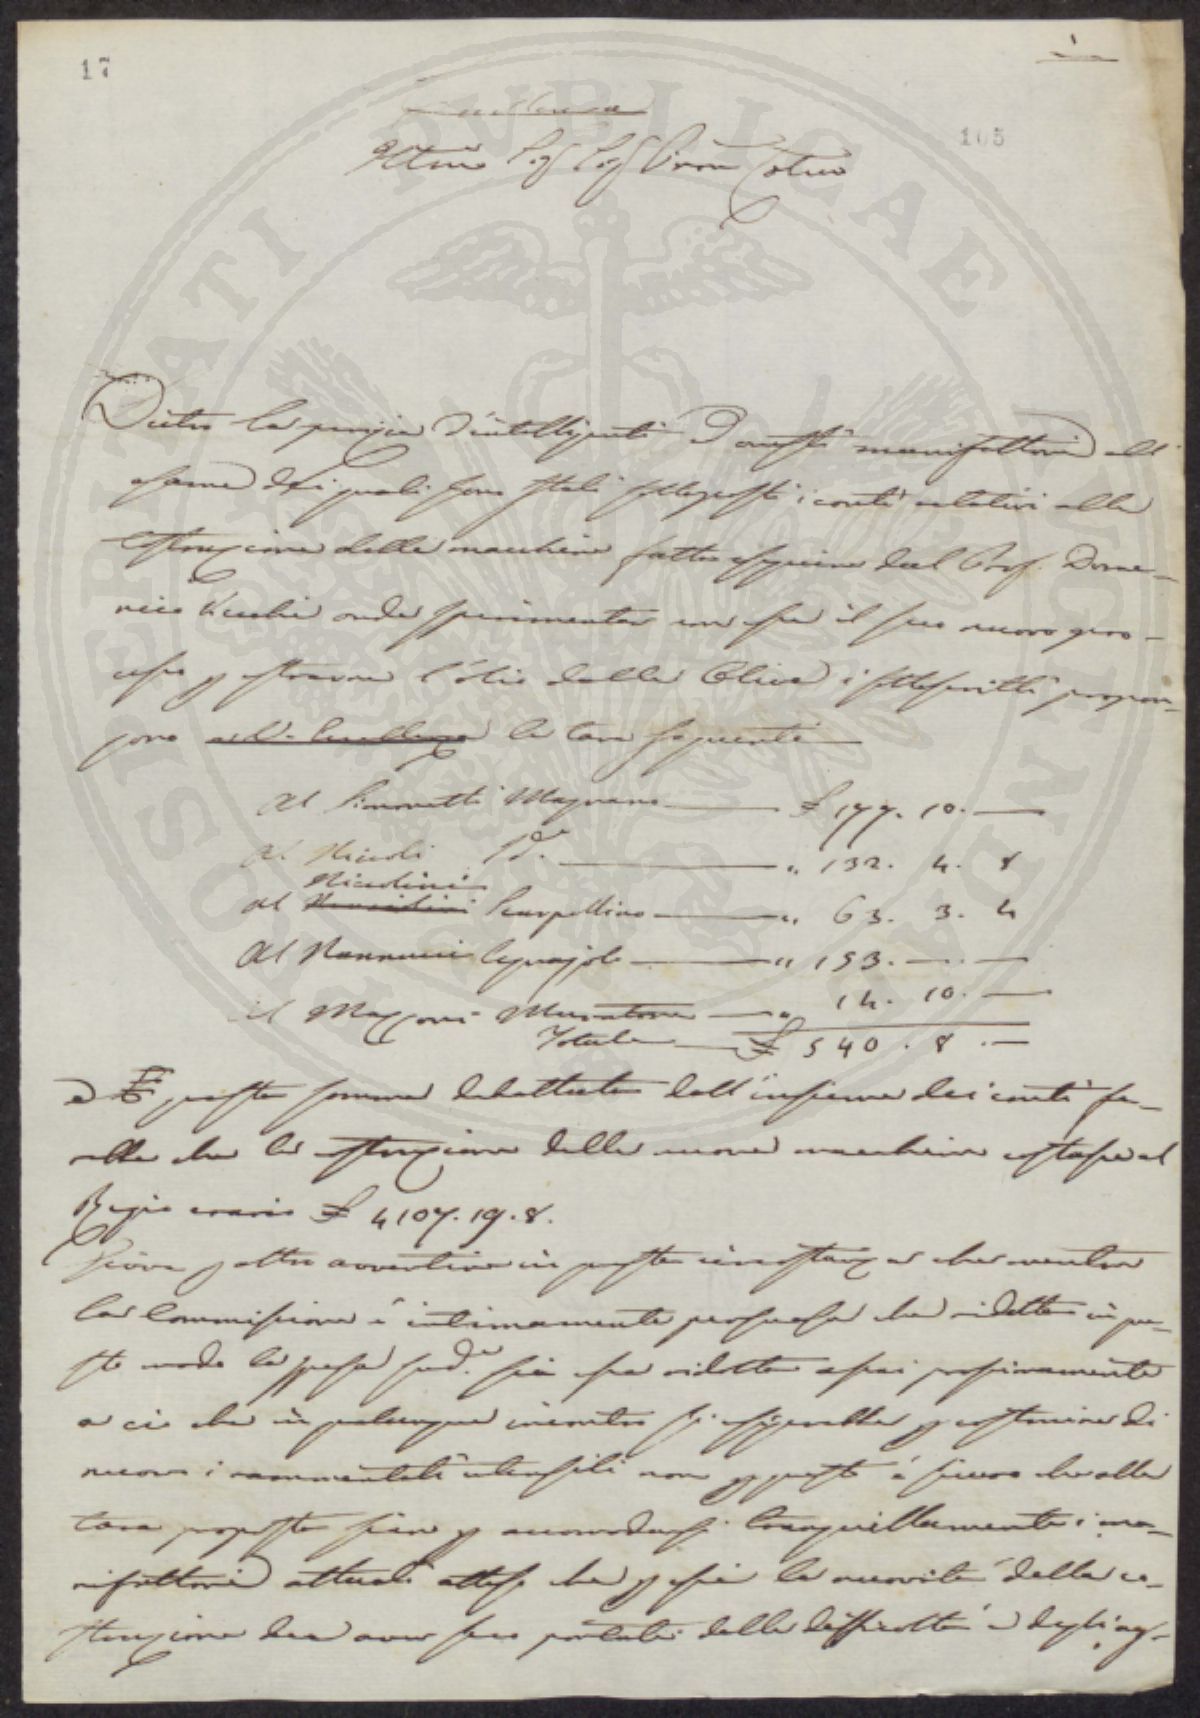 17
1
105
Eccellenza
Dietro la perizia d'intelligenti ed onesti manifattori all'
esame dei quali sono stati sottoposti i conti relativi alla
costruzione delle macchine fatte eseguire dal Prof. Dome-
nico Vecchi onde sperimentare con esse il suo nuovo pro-
cesso p estrarre l'olio dalle Olive i sottoscritti propon-
gono all'Eccellenza le tare seguenti
Al Simonetti Magnano £ 177. 10. —
Al Niccoli Id. " 132. 4. 8
Nicolini
Al Scarpellino " 63. 3. 4
Al Nannucci Legnajolo " 153. — . —
Al Mazzoni Muratore " 14. 10. —
Totale £ 540 . 8 . —
E questa somma dibattuta dall'insieme dei conti fa-
rebbe che la costruzione delle nuove macchine costasse al
Regio erario £ 4107. 19. 8.
Giova p altro avvertire in questa circostanza che mentre
la Commissione è intimamente persuasa che ridotta in que-
sto modo la spesa sud.a sia essa ridotta assai prossimamente
a ciò che in qualunque incontro si esigerebbe p costruire di
nuovo i rammentati utensili non p questo è sicura che alla
tara proposta sien p accomodarsi tranquillamente i ma-
nifattori attuali atteso che p essi la novità della co-
struzione dee aver seco portate delle difficoltà e degli ag-